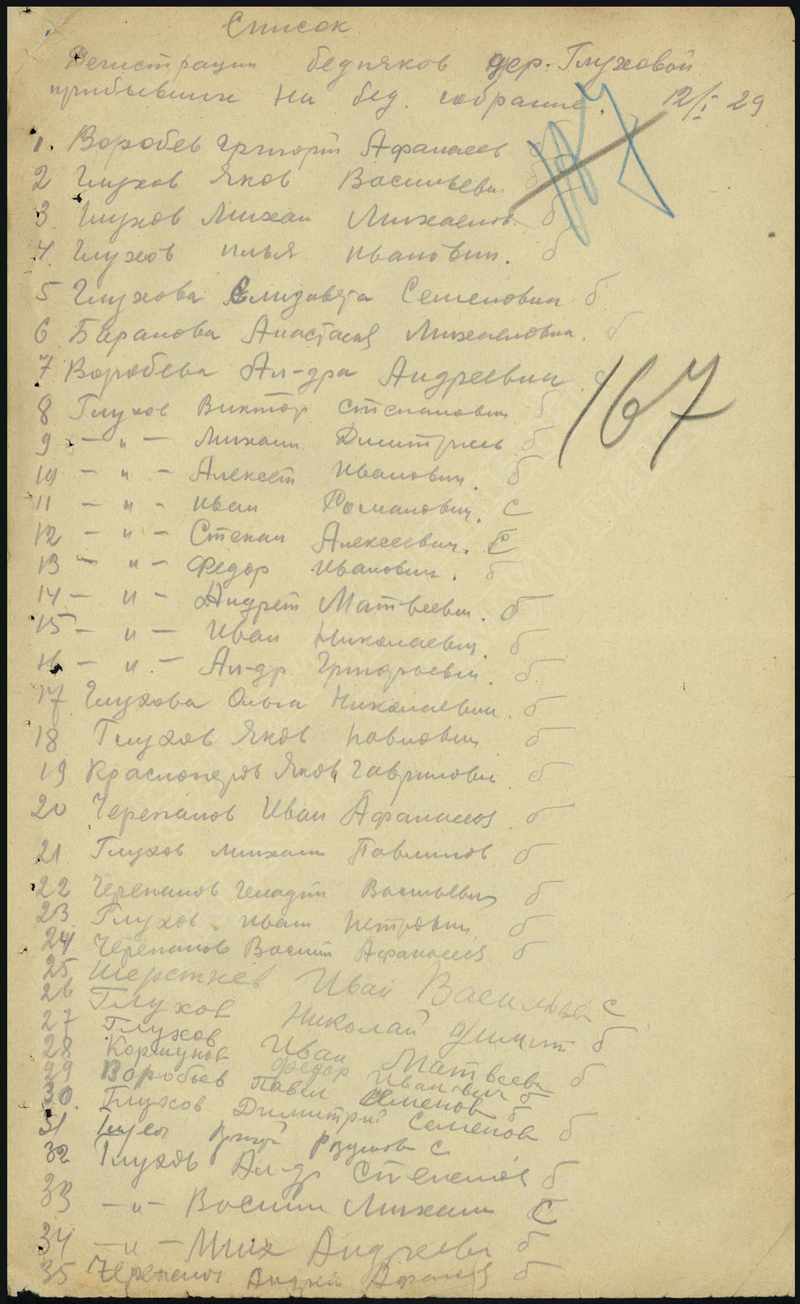 Список
Регистрации бедняков дер. Глуховой
прибывших на бед. собрание. 12/I 29
1. Воробев Григорий Афанасев
2 Глухов Яков Васильевич б
3 Глухов Михаил Михаелов б
4. Глухов илья иванович. б
5 Глухова Елизавета Семеновна б
6 Баранова Анастасия Михаеловна. б
7 Воробева Ал-дра Андреевна с
8 Глухов Виктор степанович б
9 — „ — Михаил Дмитриев б
10 — „ — Алексей Иванович. б
11 — „ — иван Романович. С
12 — „ — Степан Алексеевич. С
13 — „ — Федор иванович. б
14 — „ — Андрей Матвеевич. б
15 — „ — Иван Николаевич. б
16 — „ — Ал-др Григорьевич. б
17 Глухова Ольга Николаевна. б
18 Глухов Яков павлович б
19 Красноперов Яков Гаврилович б
20 Черепанов Иван Афанасев б
21 Глухов михаил Павлинов б
22 Черепанов Генадий Васильевич б
23. Глухов иван петрович б
24 Черепанов Василий Афанасев б
25 Шерстнев Иван Васильев с
26 Глухов Николай Димит б
27 Глухов Иван Матвеевич б
28 Коршунов Федор Иванович б
29 Воробьев Павел Семенов б
30. Глухов Димитрий Семенов б
31 с
32 Глухов Ал-др Степанов б
33 — „ — Василий Михаил С
34 — „ — Мих Андреевич б
35 Черепанов Андрей Афанасев б
167